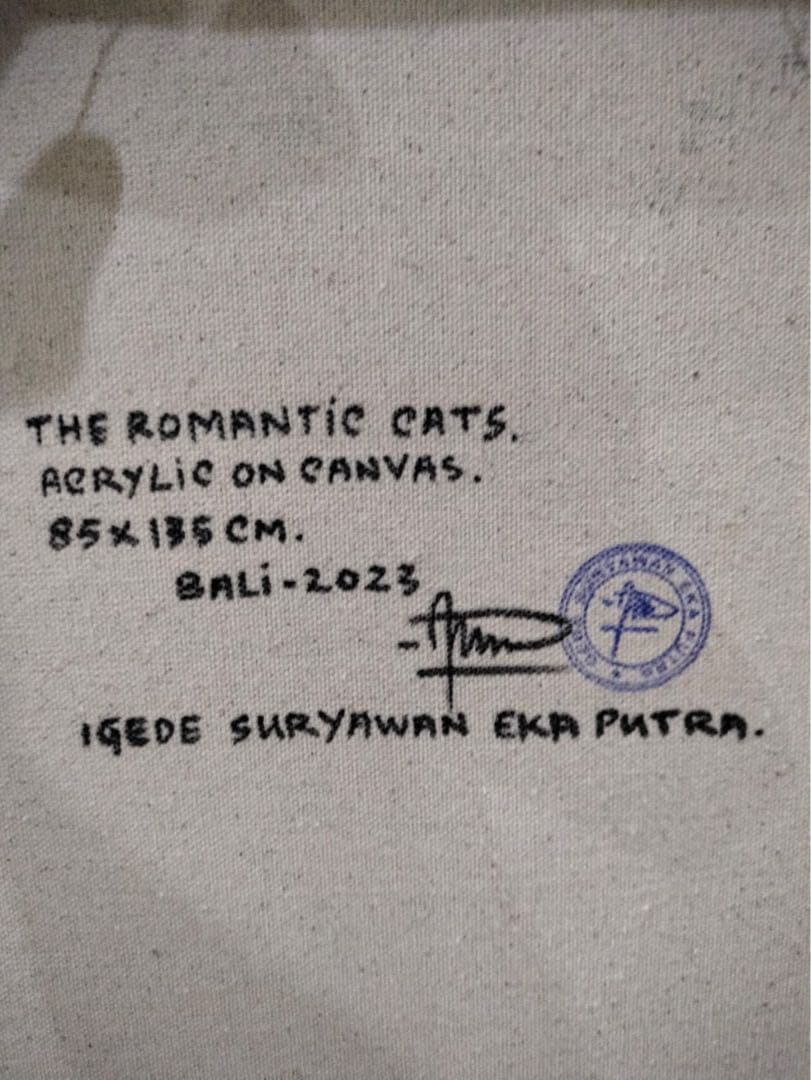 THE ROMANTIC CATS.
ACRYLIC ON CANVAS.
85 X 135 CM.
BALI - 2023
SURYAWAN EKA PUTRA
IGEDE SURYAWAN EKA PUTRA.